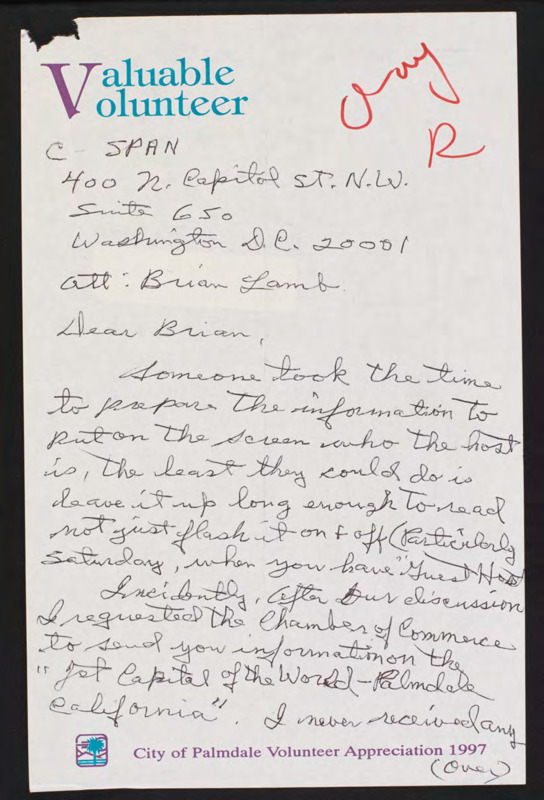 Valuable
Volunteer
R
C-SPAN
400 N. Capitol ST. N.W.
Suite 650
Washington D.C. 20001
Att: Brian Lamb.
Dear Brian,
Someone took the time
to prepare the information to
put on the screen who the host
is, the least they could do is
leave it up long enough to read
not just flash it on & off (Particularly
Saturday, when you have "Guest Host
Incidently, after our discussion
I requested the Chamber of Commerce
to send you information on the
"Jet Capital of the World - Palmdale
California". I never received any
City of Palmdale Volunteer Appreciation 1997
(over)